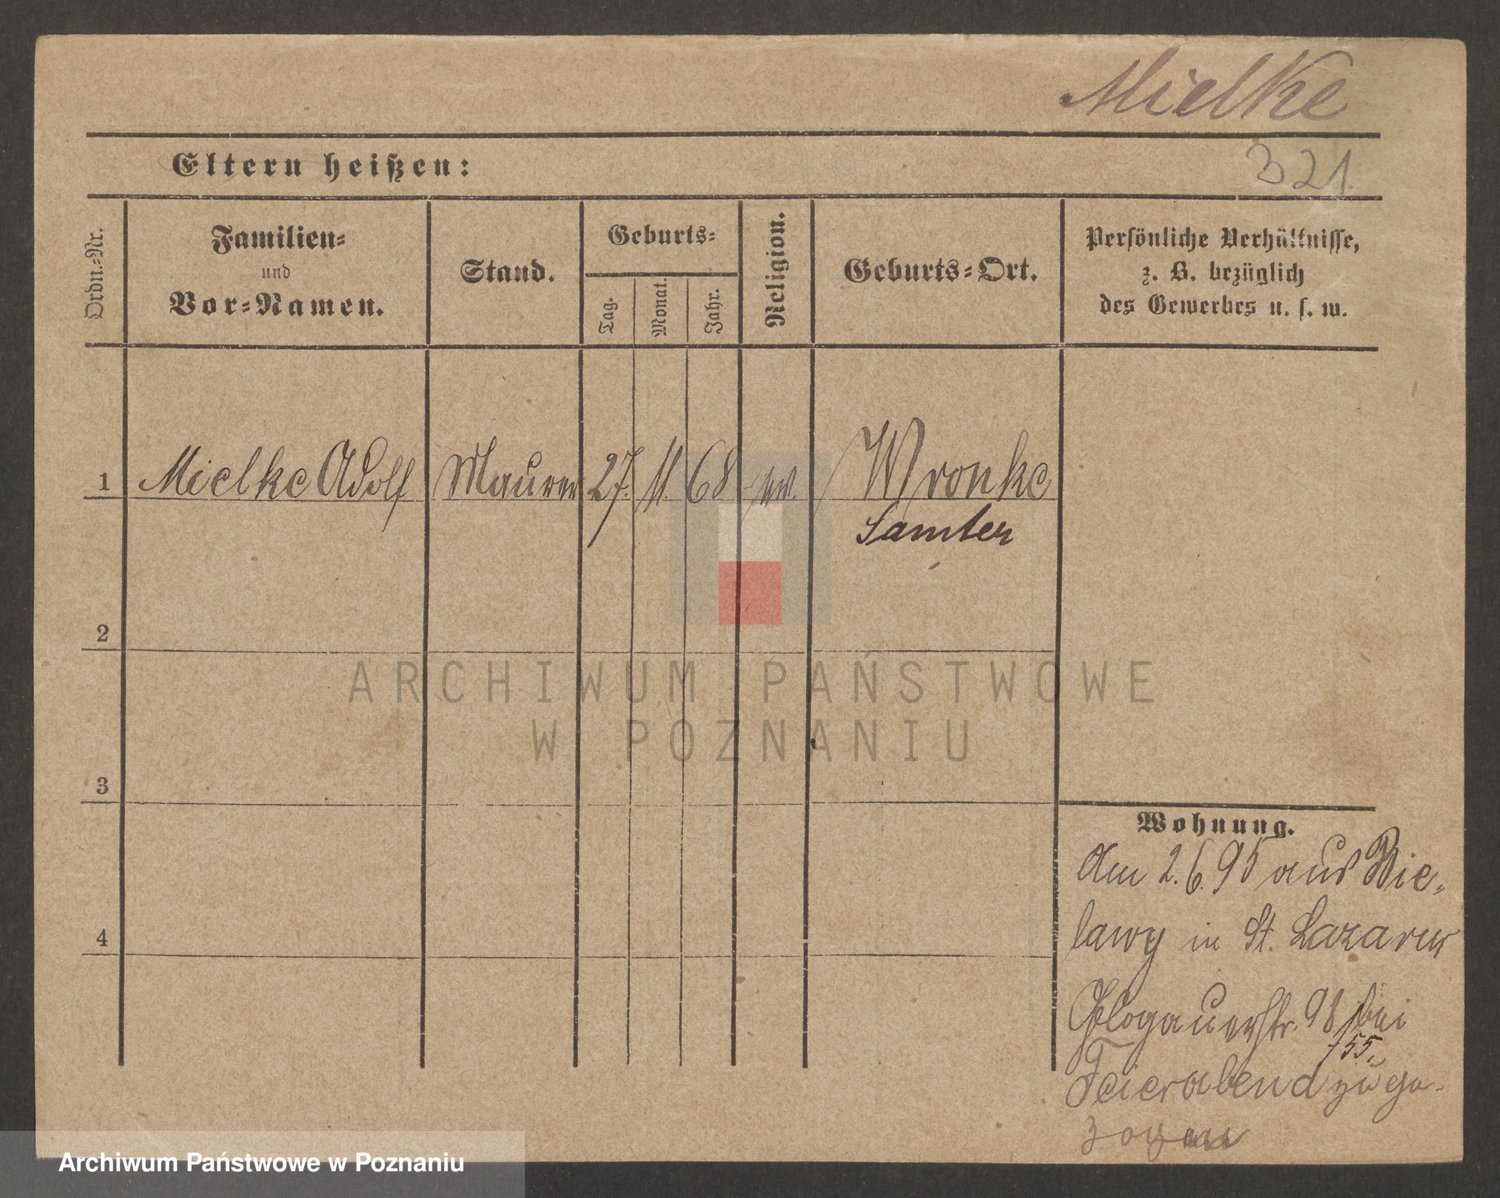 Mielke
Eltern heißen:
321.
Ordn.-Nr.
Familien-
und
Vor-Namen.
Stand.
Geburts-
Tag.
Monat.
Jahr.
Religion.
Geburts-Ort.
Persönliche Verhältnisse,
z. B. bezüglich
des Gewerbes u. s. w.
1 Mielke Adolf Maurer 27. 11. 68 ev. Wronke
Samter
2
ARCHIWUM PAŃSTWOWE
W POZNANIU
3
Wohnung.
Am 2.6.95 aus Bie-
lawy in St. Lazarus
4
Glogauerstr. 98 bei
155.
Feierabend zuge-
zogen
Archiwum Państwowe w Poznaniu